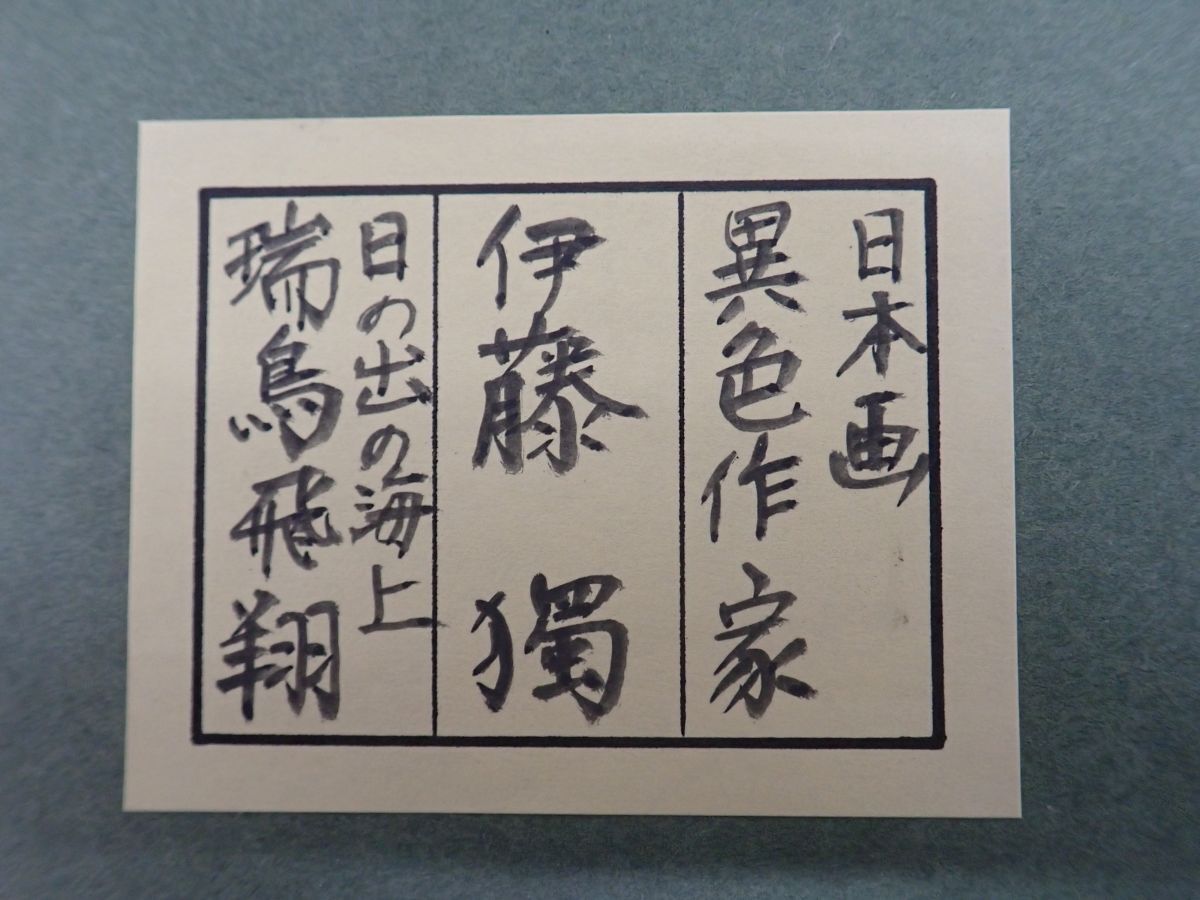 日本画
異色作家
伊藤 獨
日の出の海上
瑞鳥飛翔